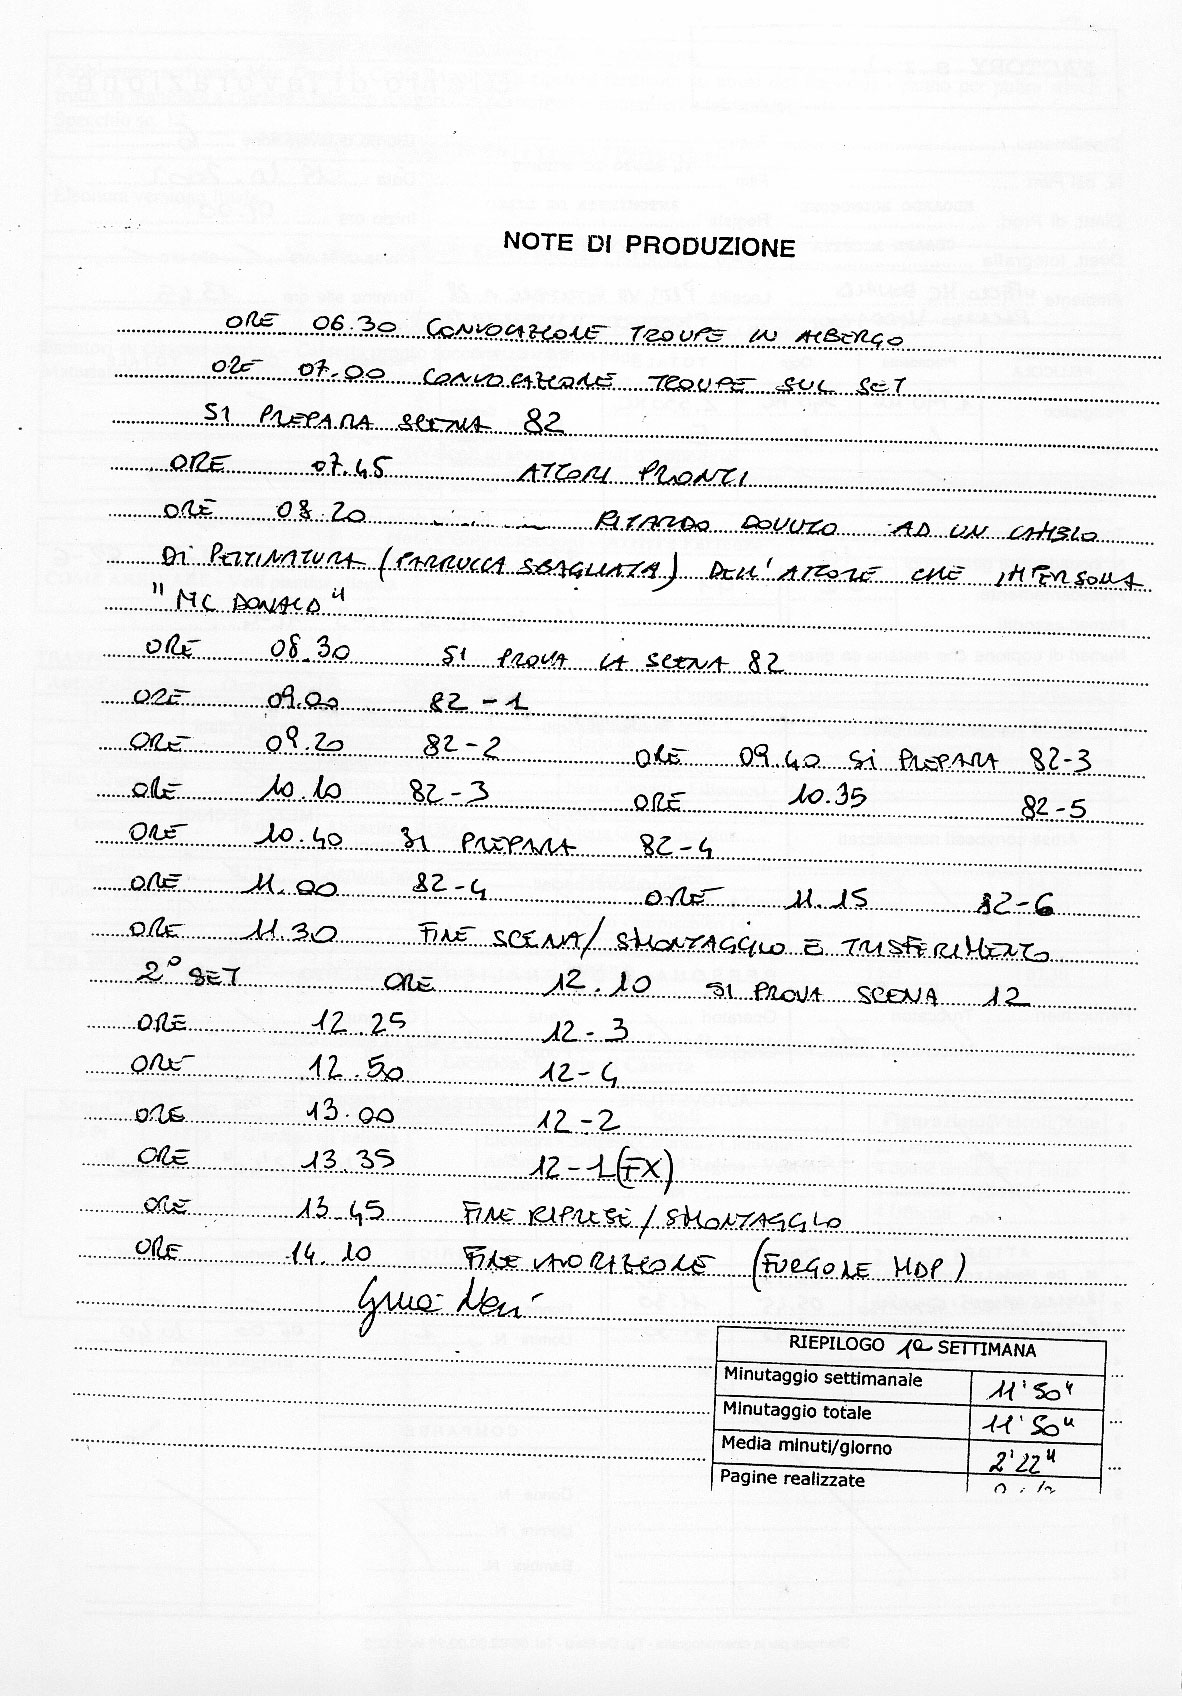 NOTE DI PRODUZIONE
ORE 06.30 CONVOCAZIONE TROUPE IN ALBERGO
ORE 07.00 CONVOCAZIONE TROUPE SUL SET
SI PREPARA SCENA 82
ORE 07.45 ATTORI PRONTI
ORE 08.20 ............ RITARDO DOVUTO AD UN CAMBIO
DI PETTINATURA (PARRUCCA SBAGLIATA) DELL'ATTORE CHE IMPERSONA
"MC DONALD"
ORE 08.30 SI PROVA LA SCENA 82
ORE 09.00 82-1
ORE 09.20 82-2 ORE 09.40 SI PREPARA 82-3
ORE 10.10 82-3 ORE 10.35 82-5
ORE 10.40 SI PREPARA 82-4
ORE 11.00 82-4 ORE 11.15 82-6
ORE 11.30 FINE SCENA/SMONTAGGIO E TRASFERIMENTO
2° SET ORE 12.10 SI PROVA SCENA 12
ORE 12.25 12-3
ORE 12.50 12-4
ORE 13.00 12-2
ORE 13.35 12-1(FX)
ORE 13.45 FINE RIPRESE/SMONTAGGIO
ORE 14.10 FINE LAVORAZIONE (FURGONE MDP)
RIEPILOGO 1a SETTIMANA
Minutaggio settimanale 11'50"
Minutaggio totale 11'50"
Media minuti/giorno 2'22"
Pagine realizzate